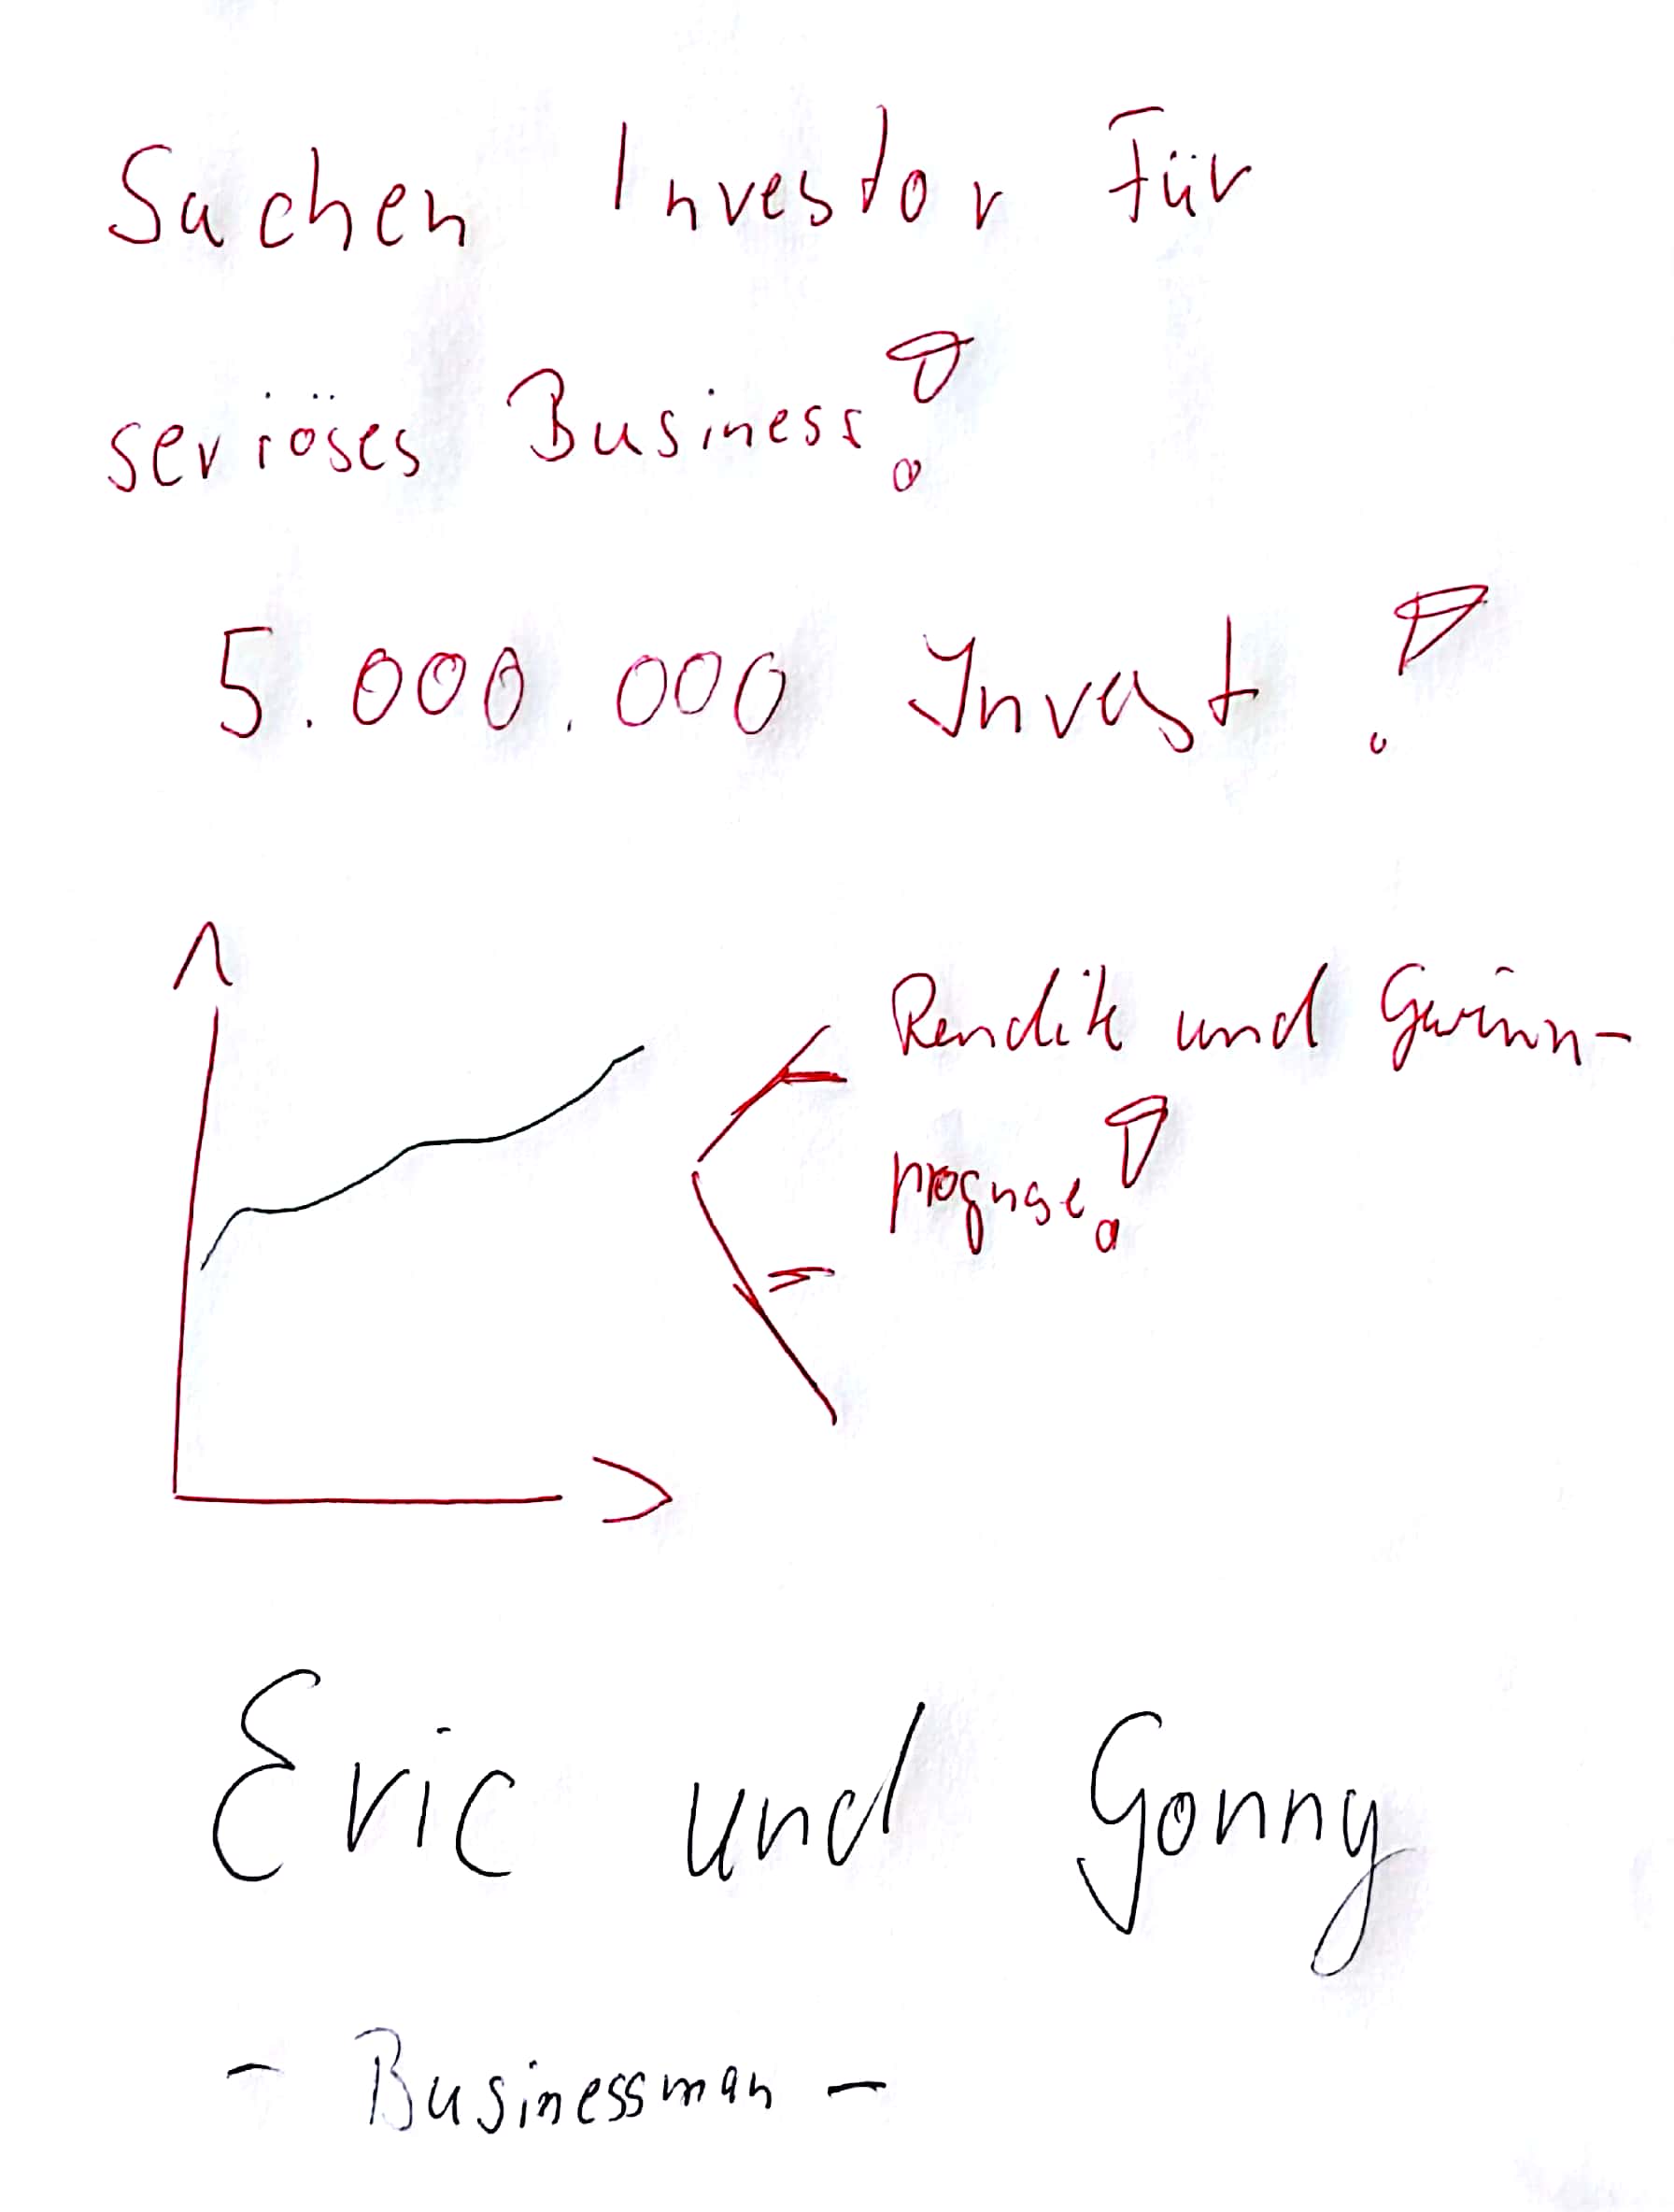 Suchen Investor Für
seriöses Business!
5.000.000 Invest!
Rendite und Gewinn-
prognose!
Eric und Gonny
- Businessman -